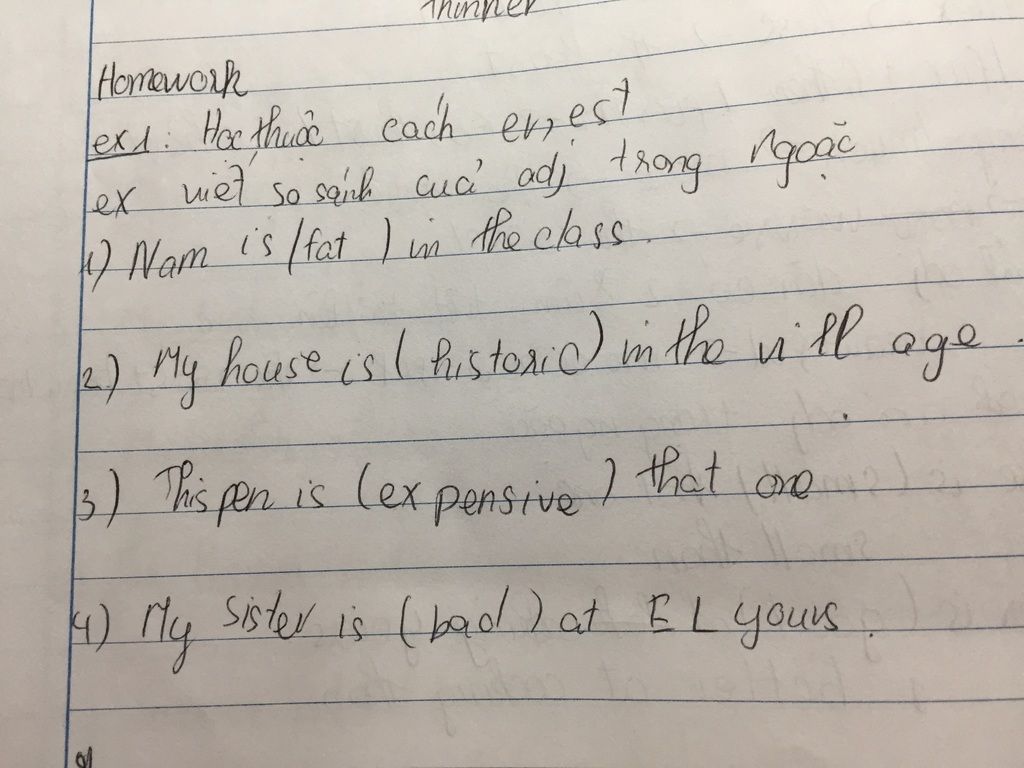 thinner
Homework
ex1: Học thuộc cách er, est
ex viết so sánh của adj trong ngoặc
1) Nam is (fat ) in the class.
2) My house is ( historic) in the vill age.
3) This pen is (expensive ) that one
4) My sister is (bad ) at EL yours.